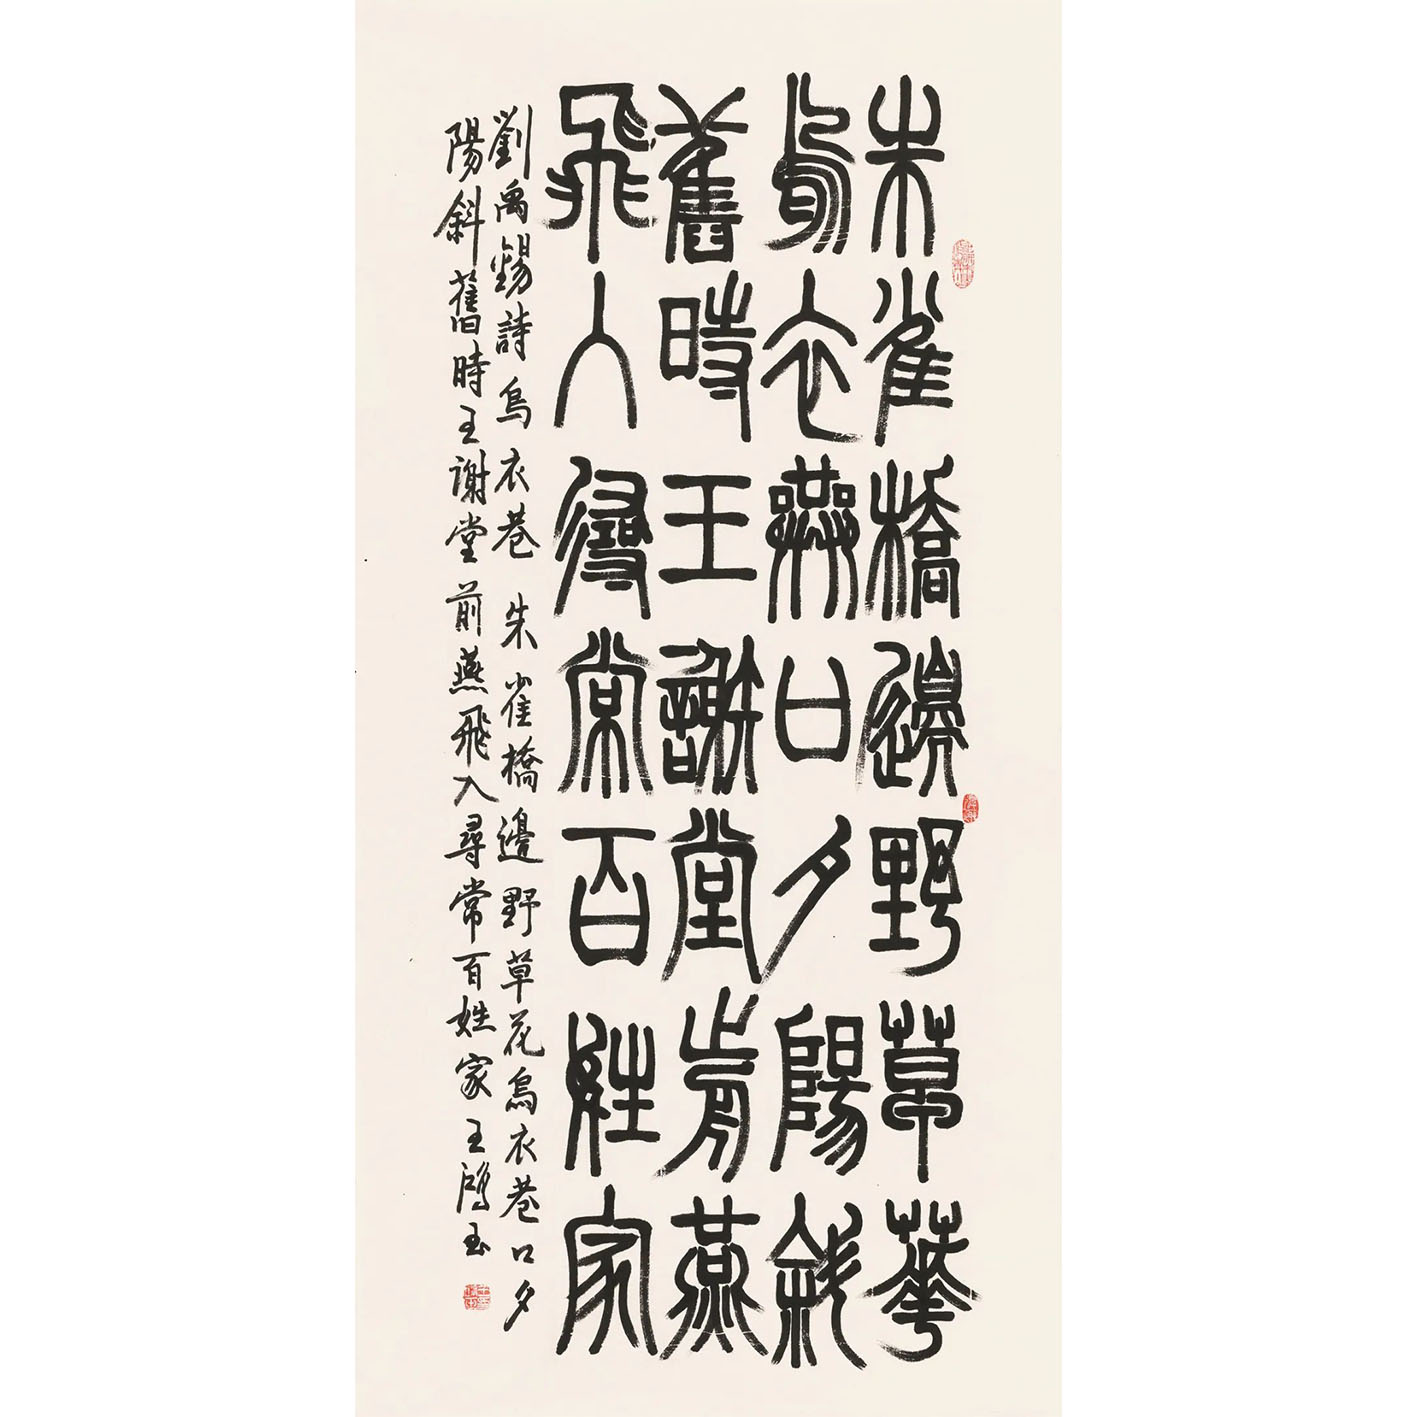 朱雀橋邊野草華
烏衣巷口夕陽斜
舊時王謝堂前燕
飛入尋常百姓家
劉禹錫詩烏衣巷 朱雀橋邊野草花烏衣巷口夕
陽斜舊時王謝堂前燕飛入尋常百姓家王鴻玉